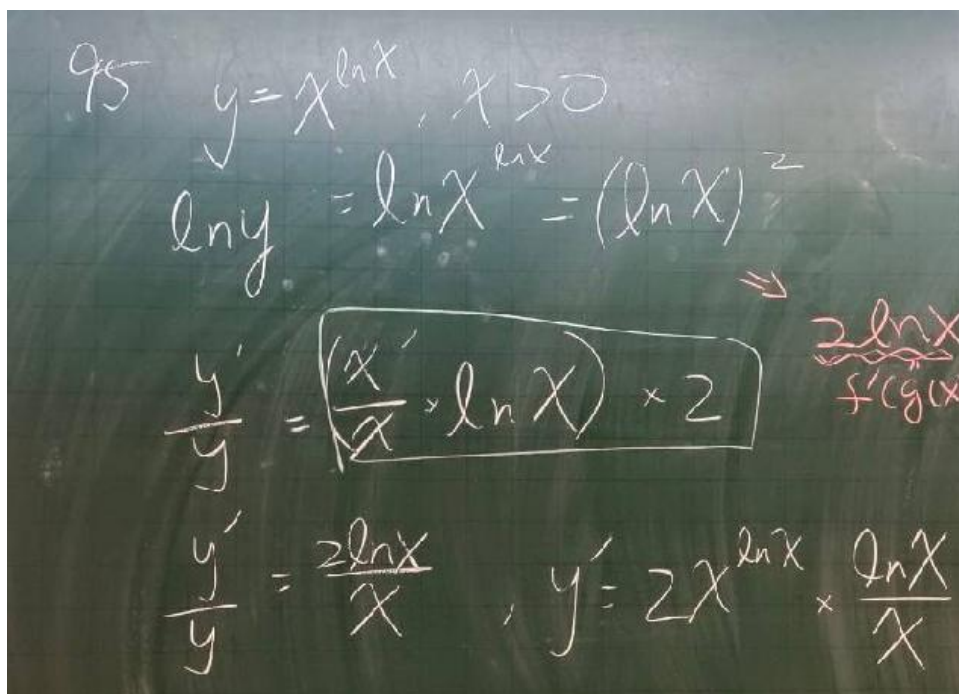 95 y = x^{ln x}, x > 0
ln y = ln x^{ln x} = (ln x)^2
⇒ 2 ln x
f'(g(x
y'/y = (x'/x × ln x) × 2
y'/y = 2 ln x / x , y' = 2x^{ln x} × ln x / x